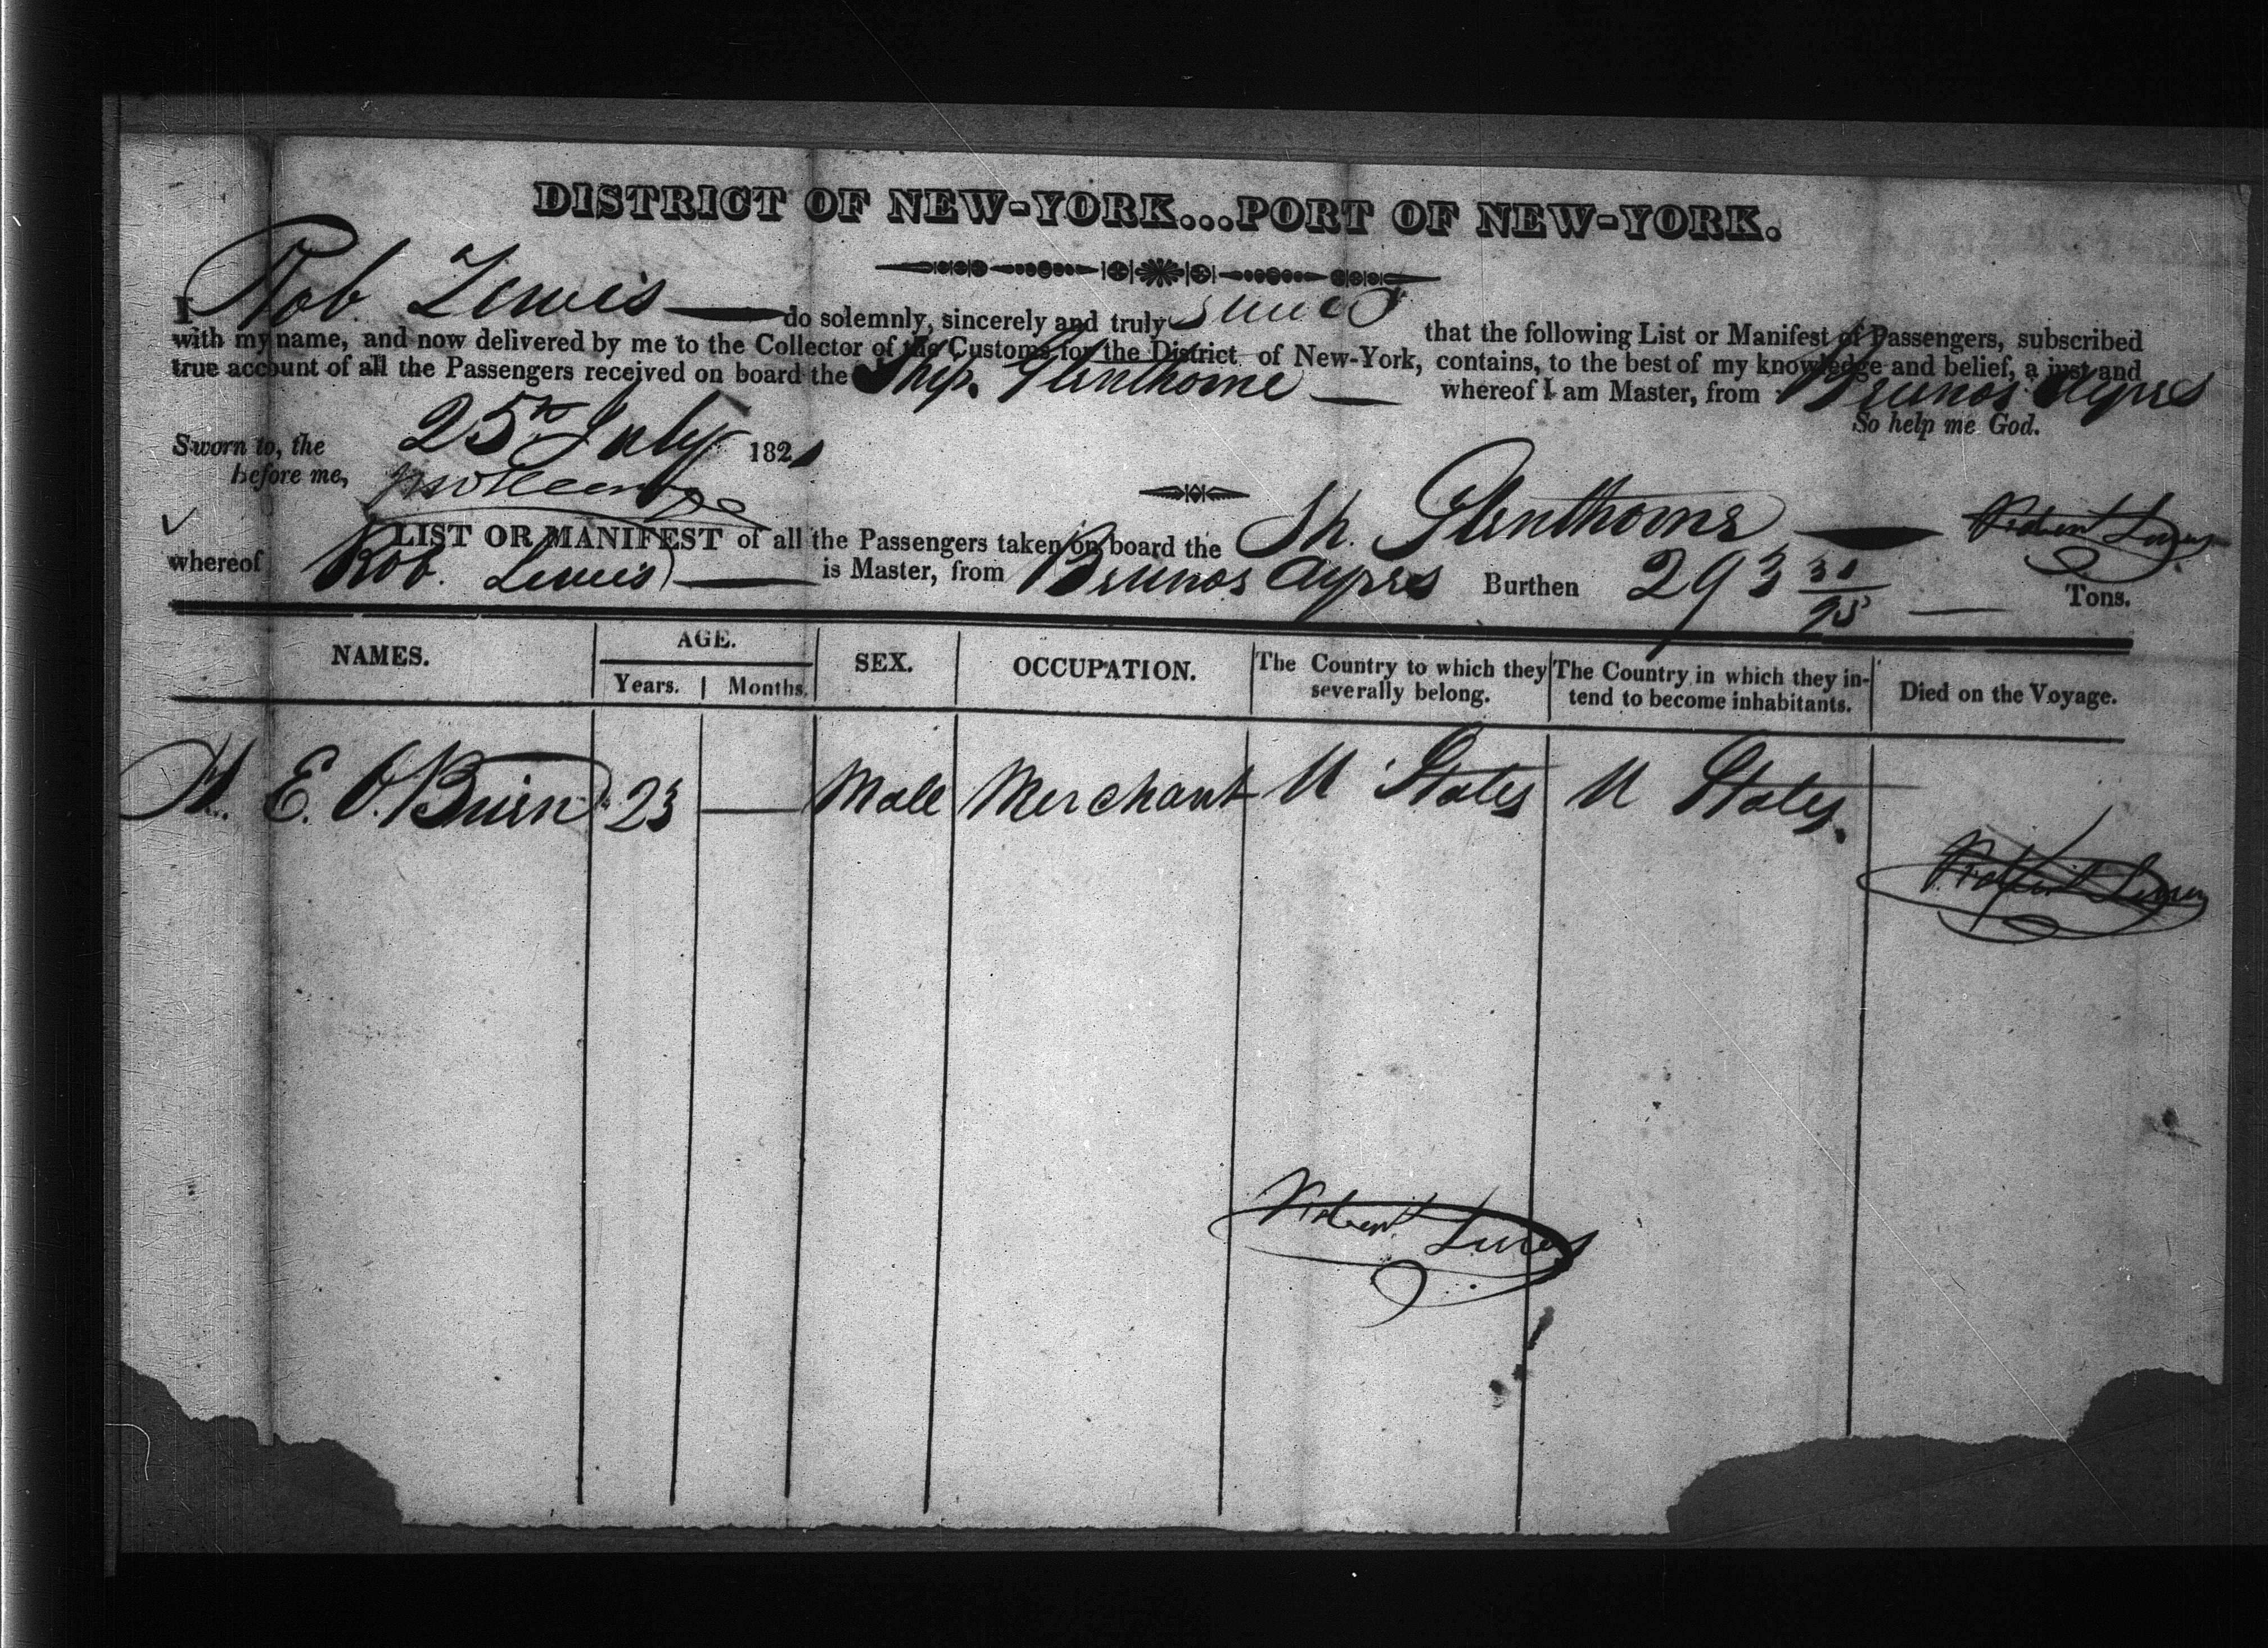 DISTRICT OF NEW-YORK...PORT OF NEW-YORK.
I Rob. Lewis do solemnly, sincerely and truly swear that the following List or Manifest of Passengers, subscribed
with my name, and now delivered by me to the Collector of the Customs for the District of New-York, contains, to the best of my knowledge and belief, a just and
true account of all the Passengers received on board the Ship Glenthorne whereof I am Master, from Buenos Ayres
So help me God.
Sworn to, the 25th July 1821
before me,
LIST OR MANIFEST of all the Passengers taken on board the Sh. Glenthorne Robert Lewis
whereof Rob. Lewis is Master, from Buenos Ayres Burthen 293 31/95 Tons.
NAMES. AGE. SEX. OCCUPATION. The Country to which they severally belong. The Country in which they intend to become inhabitants. Died on the Voyage.
Years. Months.
H. E. O.Brien 23 — Male Merchant U States U States.
Robert Lewis
Robert Lewis